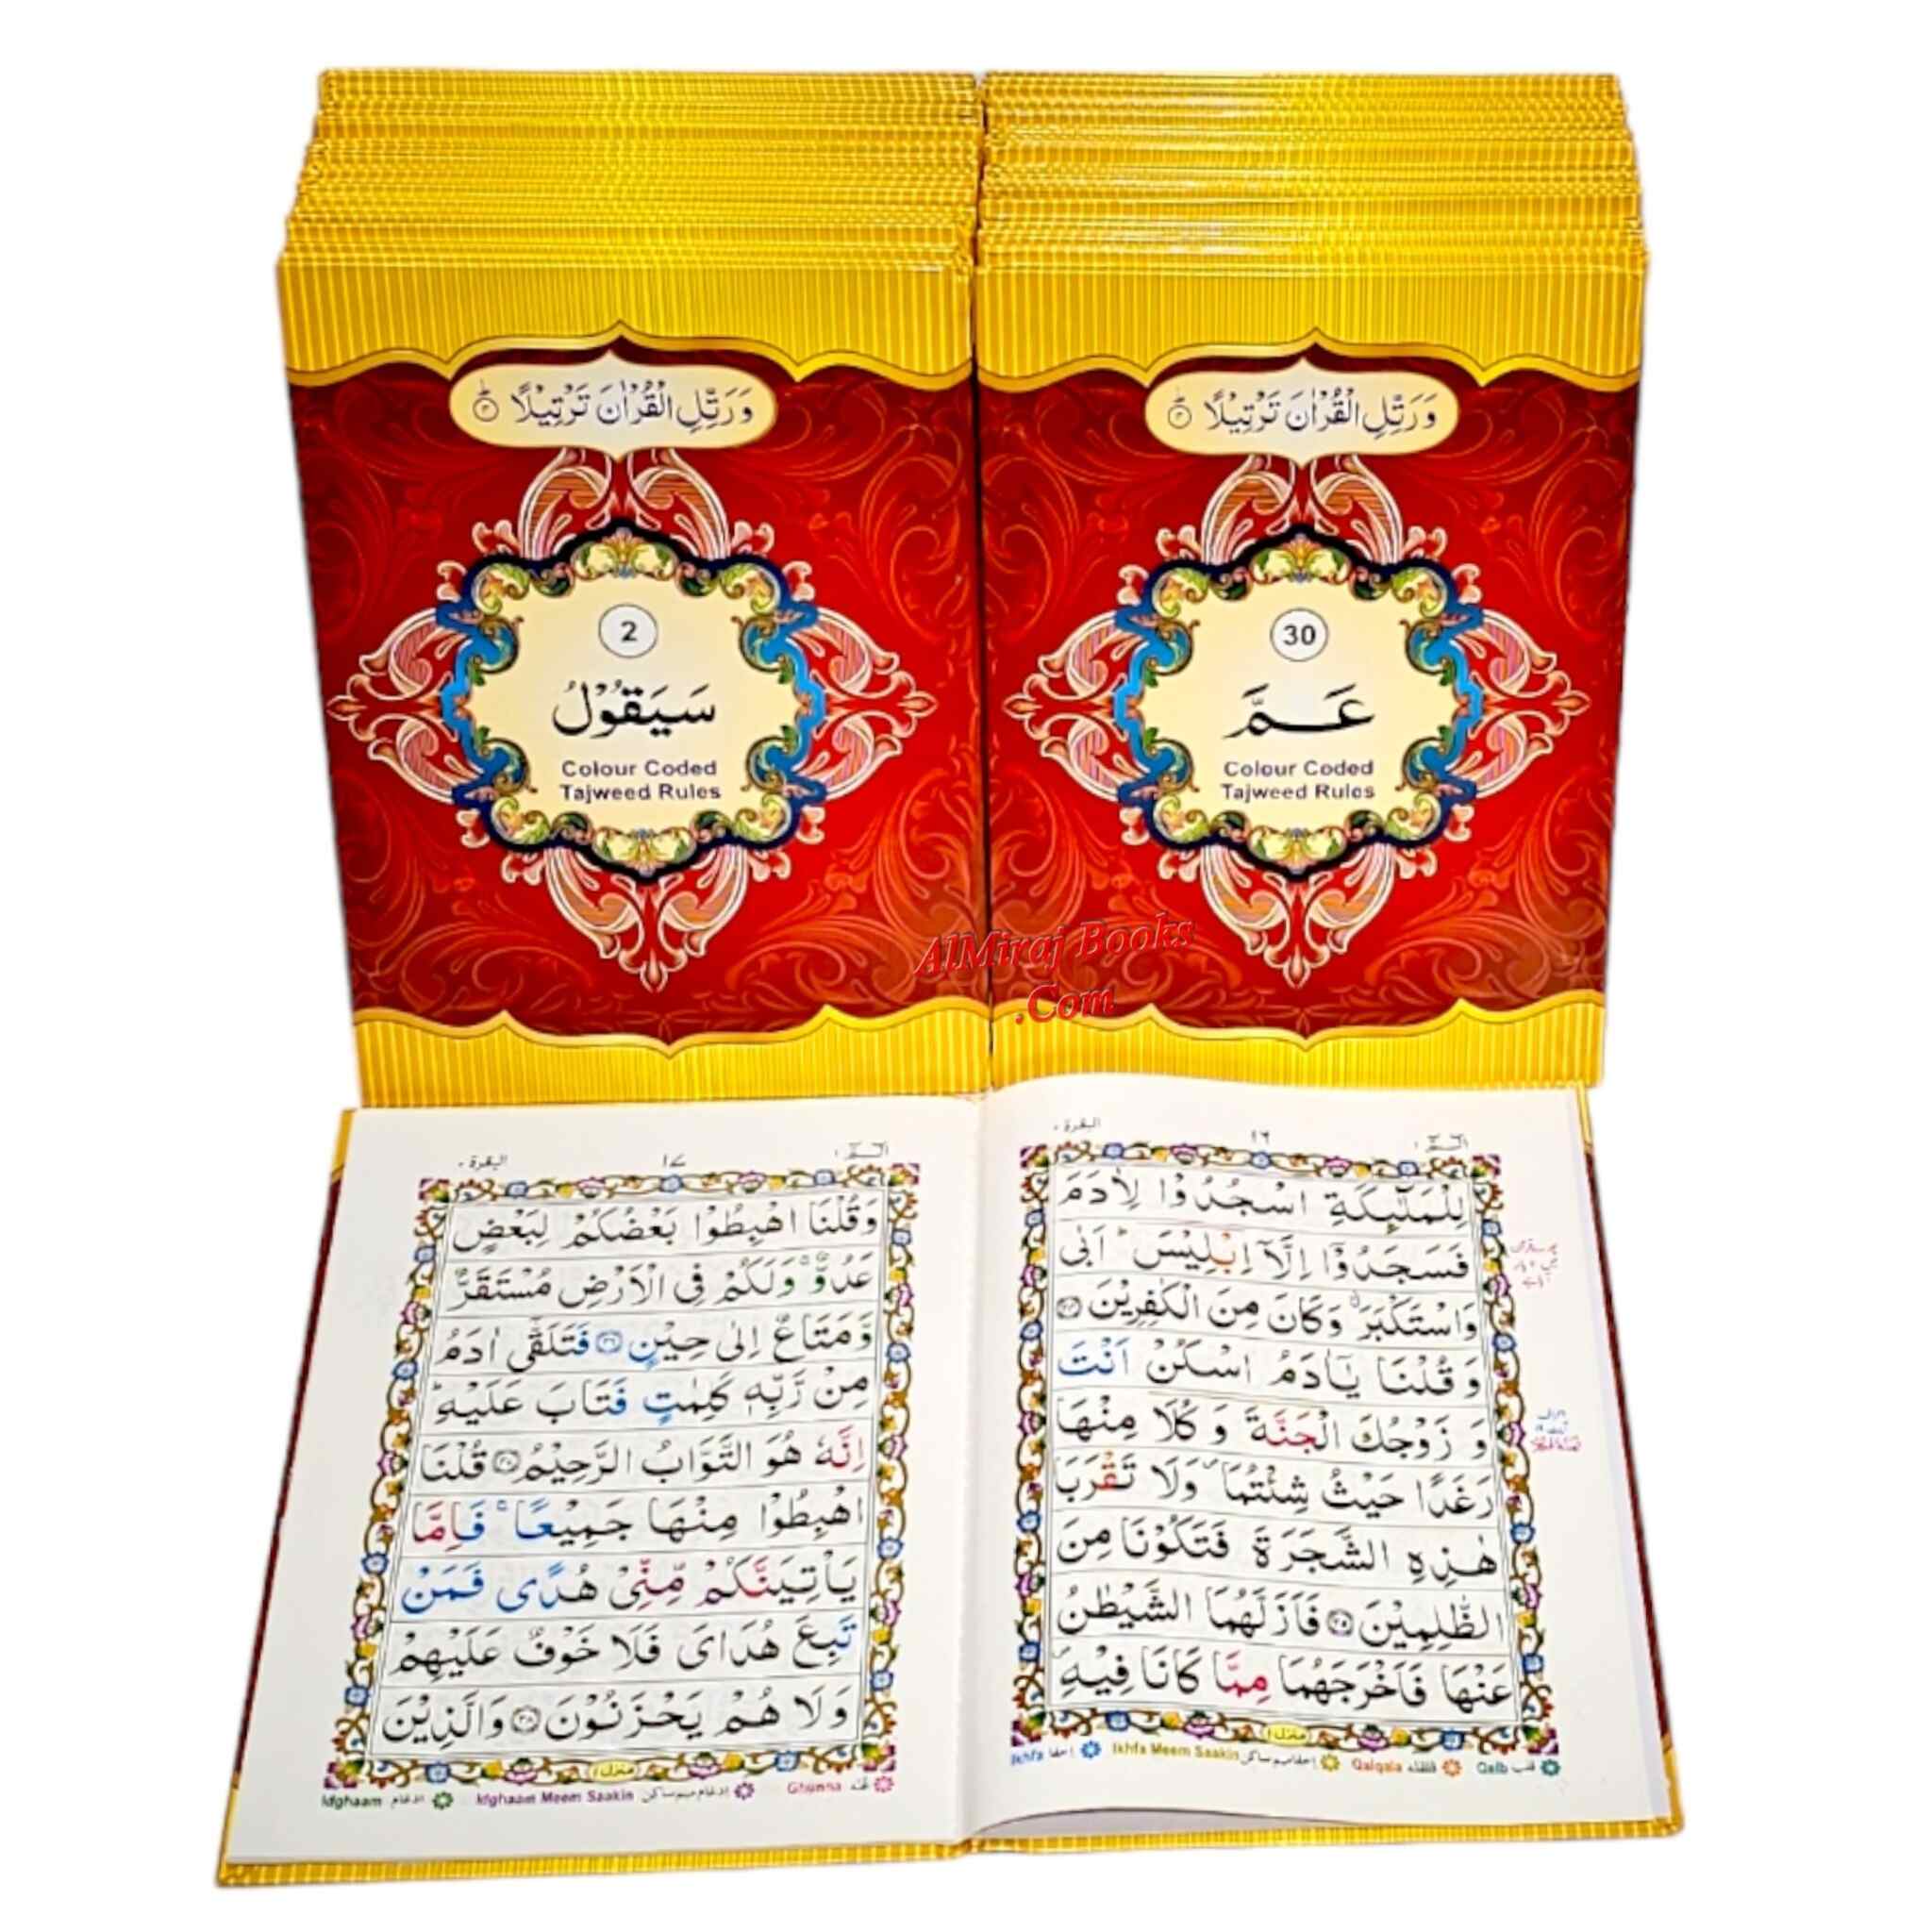 وَرَتِّلِ الْقُرْاٰنَ تَرْتِيْلًا
2
سَيَقُوْلُ
Colour Coded
Tajweed Rules
وَرَتِّلِ الْقُرْاٰنَ تَرْتِيْلًا
30
عَمَّ
Colour Coded
Tajweed Rules
AlMiraj Books
.Com
الٓمّٓ ١
١٦
البقرة
لِلْمَلٰٓئِكَةِ اسْجُدُوْا لِاٰدَمَ
فَسَجَدُوْٓا اِلَّآ اِبْلِيْسَ ؕ اَبٰى
وَاسْتَكْبَرَ ٘ وَكَانَ مِنَ الْكٰفِرِيْنَ ﴿۳۴﴾
وَ قُلْنَا يٰٓاٰدَمُ اسْكُنْ اَنْتَ
وَ زَوْجُكَ الْجَنَّةَ وَ كُلَا مِنْهَا
رَغَدًا حَيْثُ شِئْتُمَا ۪ وَلَا تَقْرَبَا
هٰذِهِ الشَّجَرَةَ فَتَكُوْنَا مِنَ
الظّٰلِمِيْنَ ﴿۳۵﴾ فَاَزَلَّهُمَا الشَّيْطٰنُ
عَنْهَا فَاَخْرَجَهُمَا مِمَّا كَانَا فِيْهِ ۪
منزل ١
Ikhfa اخفا Ikhfa Meem Saakin اخفا میم ساکن Qalqala قلقله Qalb قلب
الٓمّٓ ١
١٧
البقرة
وَقُلْنَا اهْبِطُوْا بَعْضُكُمْ لِبَعْضٍ
عَدُوٌّ ۚ وَلَكُمْ فِى الْاَرْضِ مُسْتَقَرٌّ
وَّمَتَاعٌ اِلٰى حِيْنٍ ﴿۳۶﴾ فَتَلَقّٰٓى اٰدَمُ
مِنْ رَّبِّهٖ كَلِمٰتٍ فَتَابَ عَلَيْهِ ؕ
اِنَّهٗ هُوَ التَّوَّابُ الرَّحِيْمُ ﴿۳۷﴾ قُلْنَا
اهْبِطُوْا مِنْهَا جَمِيْعًا ۚ فَاِمَّا
يَاْتِيَنَّكُمْ مِّنِّىْ هُدًى فَمَنْ
تَبِعَ هُدَاىَ فَلَا خَوْفٌ عَلَيْهِمْ
وَلَا هُمْ يَحْزَنُوْنَ ﴿۳۸﴾ وَالَّذِيْنَ
منزل ١
Idghaam ادغام Idghaam Meem Saakin ادغام میم ساکن Ghunna غنه